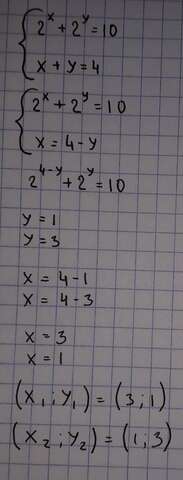 2^x + 2^y = 10
x + y = 4
2^x + 2^y = 10
x = 4 - y
2^{4-y} + 2^y = 10
y = 1
y = 3
x = 4 - 1
x = 4 - 3
x = 3
x = 1
(x₁; y₁) = (3; 1)
(x₂; y₂) = (1; 3)